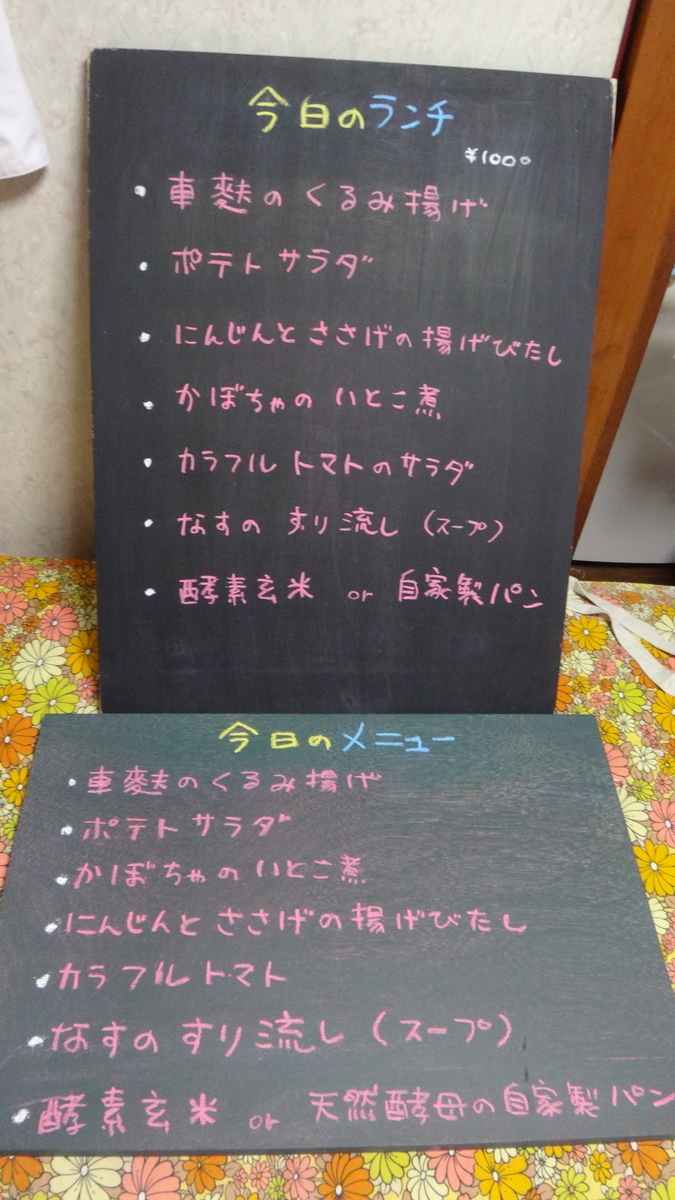 今日のランチ
¥1000
・車麩のくるみ揚げ
・ポテトサラダ
・にんじんとささげの揚げびたし
・かぼちゃのいとこ煮
・カラフルトマトのサラダ
・なすのすり流し(スープ)
・酵素玄米 or 自家製パン
今日のメニュー
・車麩のくるみ揚げ
・ポテトサラダ
・かぼちゃのいとこ煮
・にんじんとささげの揚げびたし
・カラフルトマト
・なすのすり流し(スープ)
・酵素玄米 or 天然酵母の自家製パン